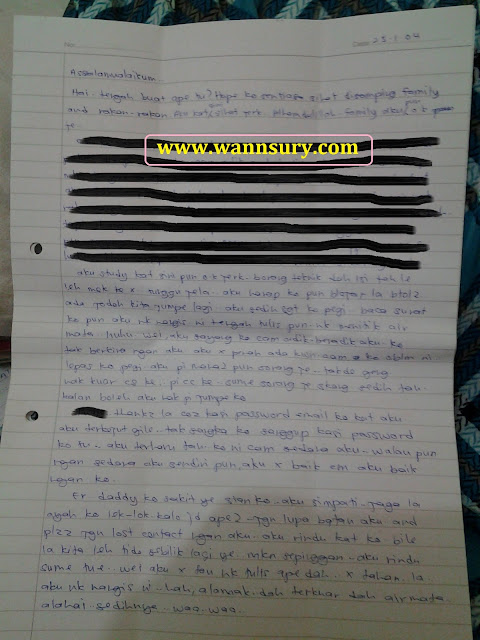 Date 23.1.04
Assalamualaikum...
Hai.. tengah buat ape tu? Hope ko sentiasa sihat disamping family
and rakan-rakan. Aku kat sini sihat jerk. Alhamdulillah family aku ok
je
www.wannsury.com
aku study kat sini pun ok jerk. borang teknik dah isi tah le
leh msk ke x. tunggu jela. aku harap ko pun blajar la btol2
ada jodoh kita jumpe lagi. aku sedih sgt ko pegi. baca surat
ko pun aku nk nangis ni tengah tulis pun nk menitik air
mata. huhu wei, aku sayang ko cam adik-beradik aku. ko
tak berkira ngan aku. aku x prnah ada kwn cam ko sblm ni
lepas ko pegi aku pi makal pun sorang je. takde geng
nak kuar ke. pi cc ke. sume sorang je skang. sedih tau.
kalau boleh aku nak pi jumpe ko
thankz la coz kasi password email ko kat aku
aku terkejut gile. tak sangka ko sanggup kasi password
ko tu. aku terharu tau. ko ni cam sedara aku. walau pun
ngan sedara aku sendiri pun, aku x baik cm aku baik
ngan ko.
Er daddy ko sakit ye sian ko. aku simpati. jaga la
ayah ko lok-lok. kalo jd ape2 jgn lupa bgtau aku and
plzz jgn lost contact ngan aku. aku rindu kat ko. bile
la kita leh tido sebilik lagi ye mkn sepinggan. aku rindu
sume tu. wei aku x tau nk tulis ape dah. x tahan la
aku nk nangis ni. hah, alamak dah terkuar dah air mata
alahai sedihnye.. waa.. waa..